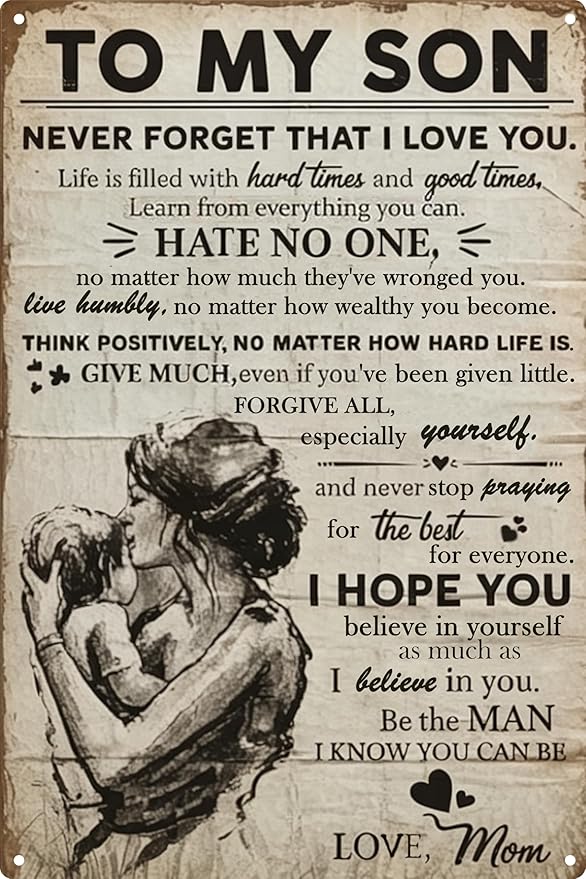 TO MY SON
NEVER FORGET THAT I LOVE YOU.
Life is filled with hard times and good times,
Learn from everything you can.
HATE NO ONE,
no matter how much they've wronged you.
live humbly, no matter how wealthy you become.
THINK POSITIVELY, NO MATTER HOW HARD LIFE IS.
GIVE MUCH, even if you've been given little.
FORGIVE ALL,
especially yourself.
and never stop praying
for the best
for everyone.
I HOPE YOU
believe in yourself
as much as
I believe in you.
Be the MAN
I KNOW YOU CAN BE
LOVE, Mom